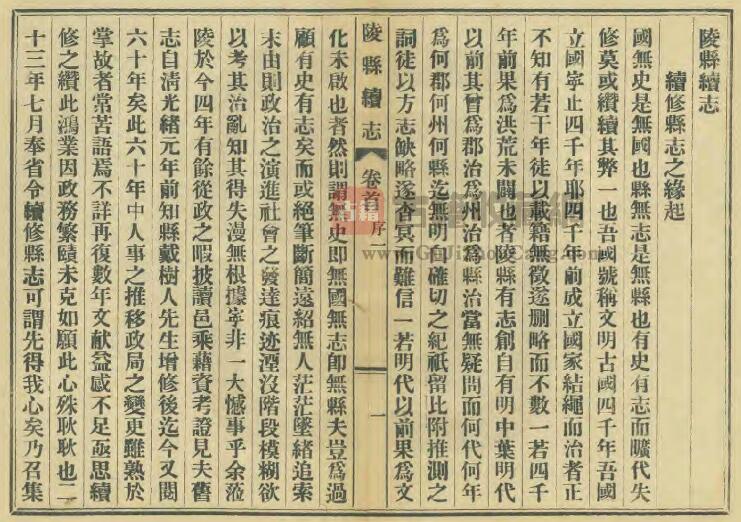 陵縣續志
續修縣志之緣起
國無史是無國也縣無志是無縣也有史有志而曠代失
修莫或纘續其弊一也吾國號稱文明古國四千年吾國
立國寧止四千年耶四千年前成立國家結繩而治者正
不知有若干年徒以載籍無徵遂刪略而不數一若四千
年前果爲洪荒未闢也者陵縣有志創自有明中葉明代
以前其曾爲郡治爲州治爲縣治當無疑問而何代何年
爲何郡何州何縣迄無明白確切之紀祇留比附推測之
詞徒以方志缺略遂杳冥而難信一若明代以前果爲文
陵縣續志
卷首
序二
一
化未啟也者然則謂無史即無國無志即無縣夫豈爲過
顧有史有志矣而或絕筆斷簡遠紹無人茫茫墜緒追索
末由則政治之演進社會之發達痕迹湮沒階段模糊欲
以考其治亂知其得失漫無根據寧非一大憾事乎余蒞
陵於今四年有餘從政之暇披讀邑乘藉資考證見夫舊
志自清光緒元年前知縣戴樹人先生增修後迄今又閱
六十年矣此六十年中人事之推移政局之變更雖熟於
掌故者常苦語焉不詳再復數年文献益感不足亟思續
修之纘此鴻業因政務繁賾未克如願此心殊耿耿也二
十三年七月奉省令續修縣志可謂先得我心矣乃召集
古籍